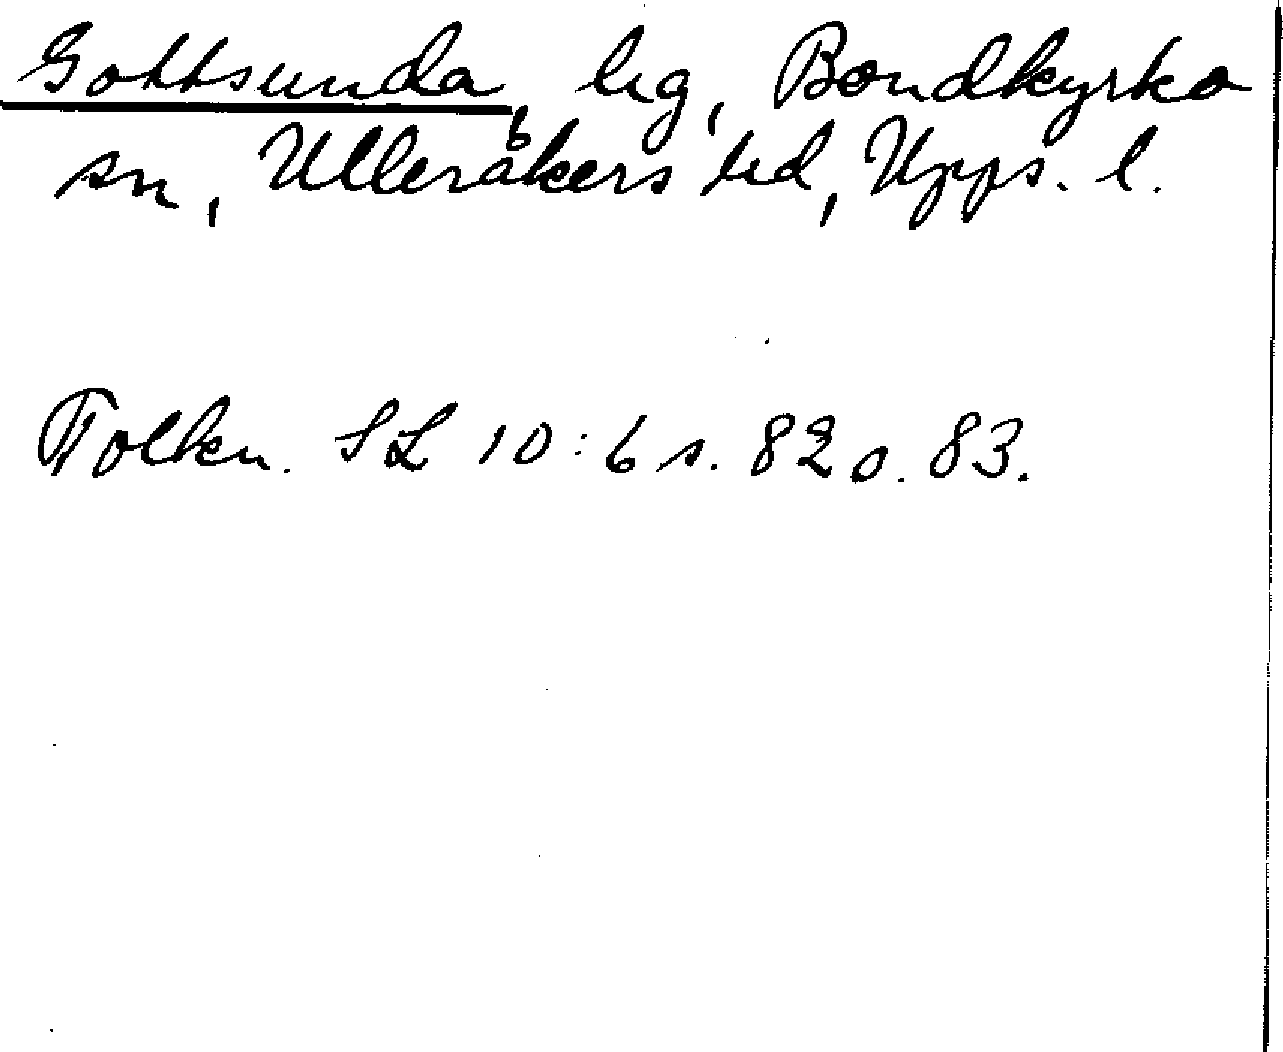 Gottsunda, hg, Bondkyrko
sn, Ulleråkers hd, Upps. l.
Tolkn. SL 10:6 s. 82 o. 83.